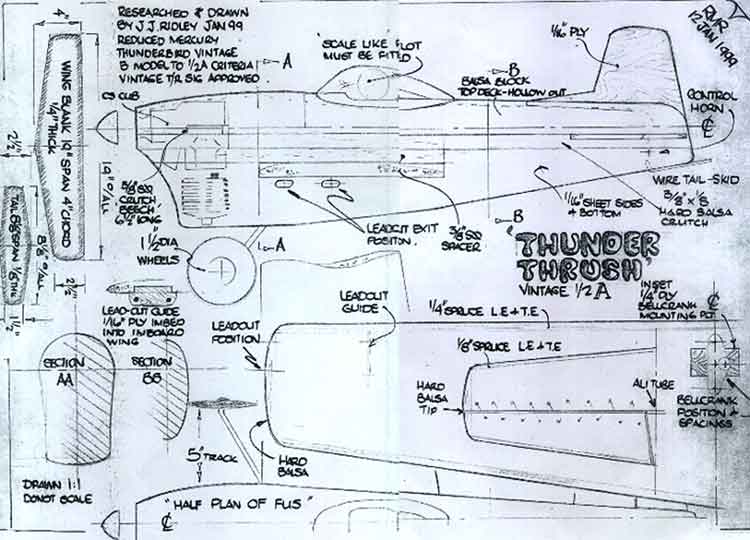 RESEARCHED & DRAWN
BY J.J. RIDLEY JAN 99
REDUCED MERCURY
THUNDERBIRD VINTAGE
B MODEL TO 1/2A CRITERIA
VINTAGE T/R SIG APPROVED.
4"
WING BLANK 19" SPAN 4" CHORD
1/4" THICK
2 1/2"
19" O/ALL
CS CUB
A
'SCALE LIKE' PILOT
MUST BE FITTED
B
BALSA BLOCK
TOP DECK-HOLLOW OUT
1/16" PLY
RMR
12 JAN 1999
CONTROL
HORN
WIRE TAIL-SKID
3/8" x 1/8
HARD BALSA
CRUTCH
1/16" SHEET SIDES
& BOTTOM
B
3/8 SQ
SPACER
LEADOUT EXIT
POSITION.
3/8 SQ
CRUTCH
BEECH
6 1/2" LONG
A
1 1/2" DIA
WHEELS
8 5/8" O/ALL
2 1/2"
1 1/2"
LEAD-OUT GUIDE
1/16" PLY IMBED
INTO INBOARD
WING
"THUNDER
THRUSH"
VINTAGE 1/2 A
LEADOUT
POSITION
LEADOUT
GUIDE
1/4" SPRUCE L.E & T.E
INSET
1/4" PLY
BELLCRANK
MOUNTING
1/8" SPRUCE L.E & T.E
HARD
BALSA
TIP
ALI TUBE
BELLCRANK
POSITION &
SPACINGS
SECTION
AA
SECTION
BB
5" TRACK
HARD
BALSA
DRAWN 1:1
DO NOT SCALE
"HALF PLAN OF FUS"